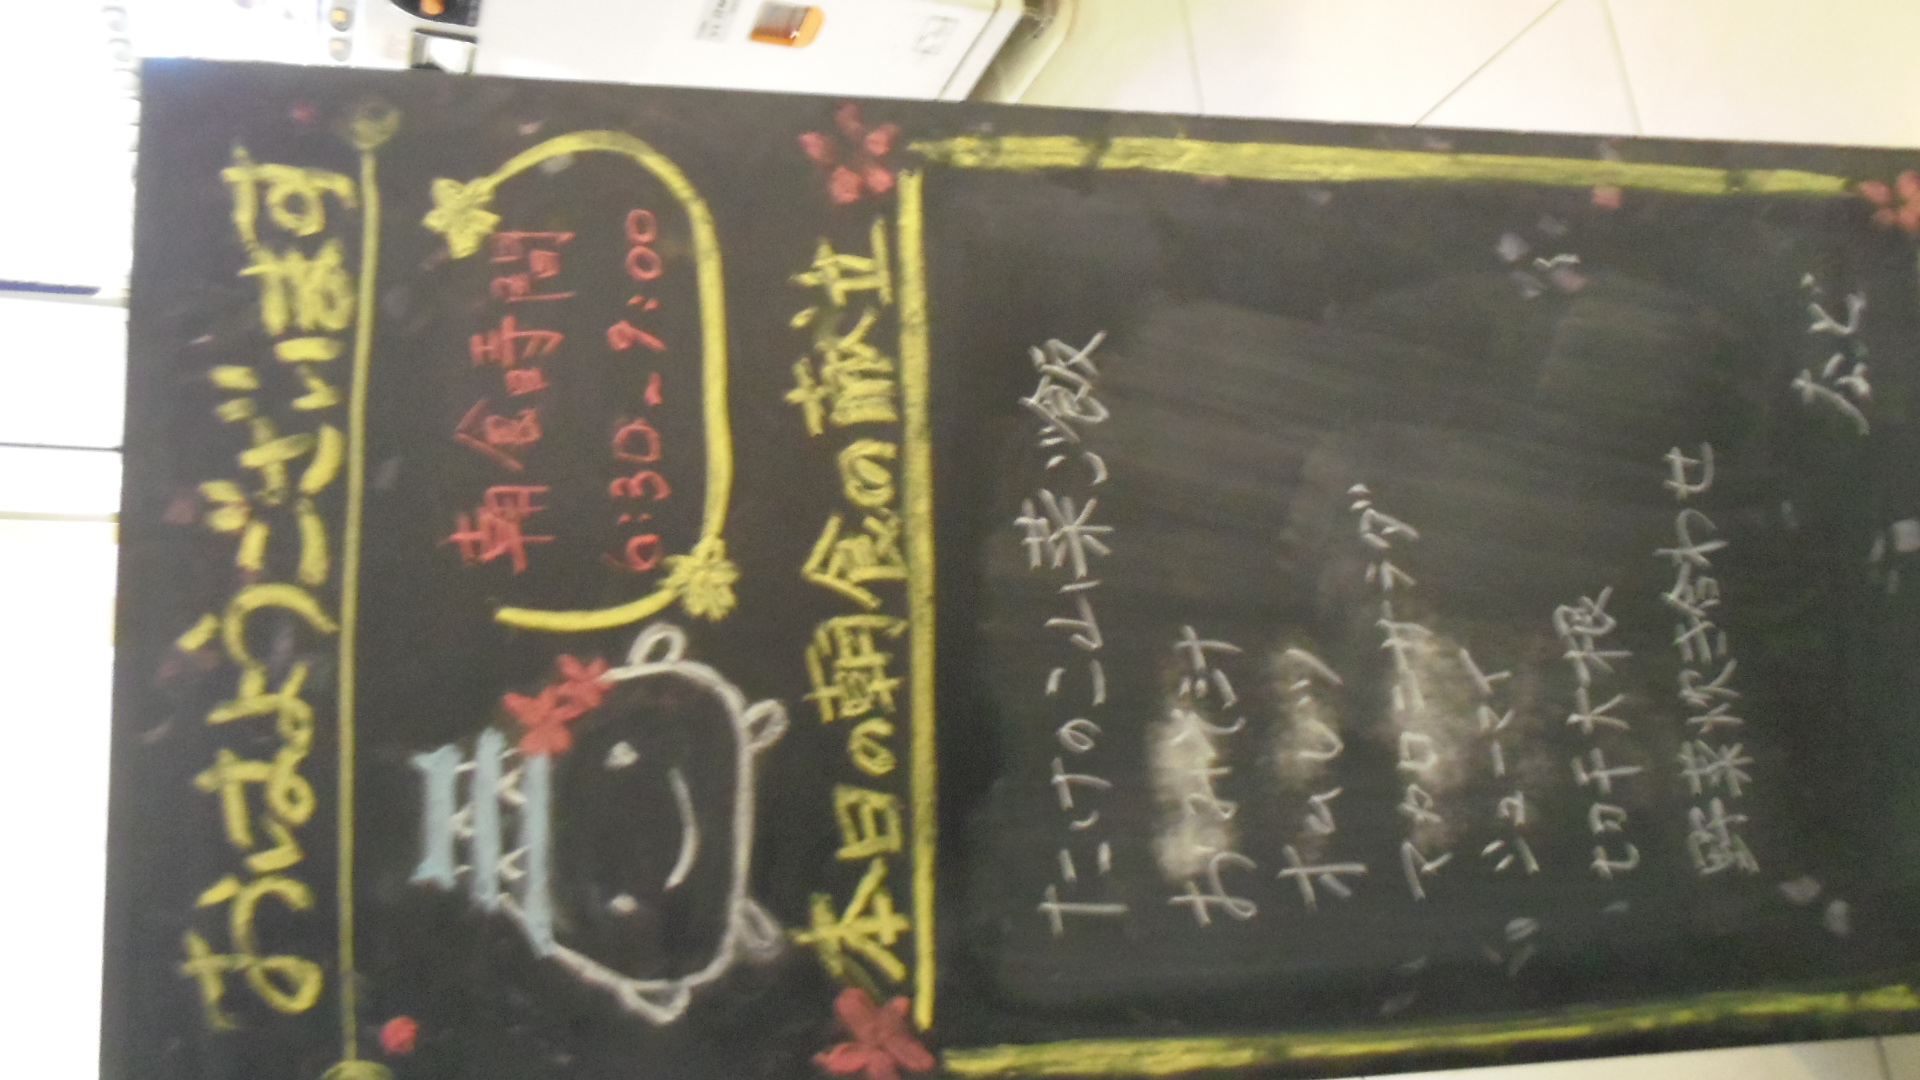 おはようございます
朝食時間
6:30~9:00
本日の朝食の献立
たけのこ山菜ご飯
おみそ汁
オムレツ
マカロニサラダ
ジュース
切干大根
野菜炊き合わせ
など